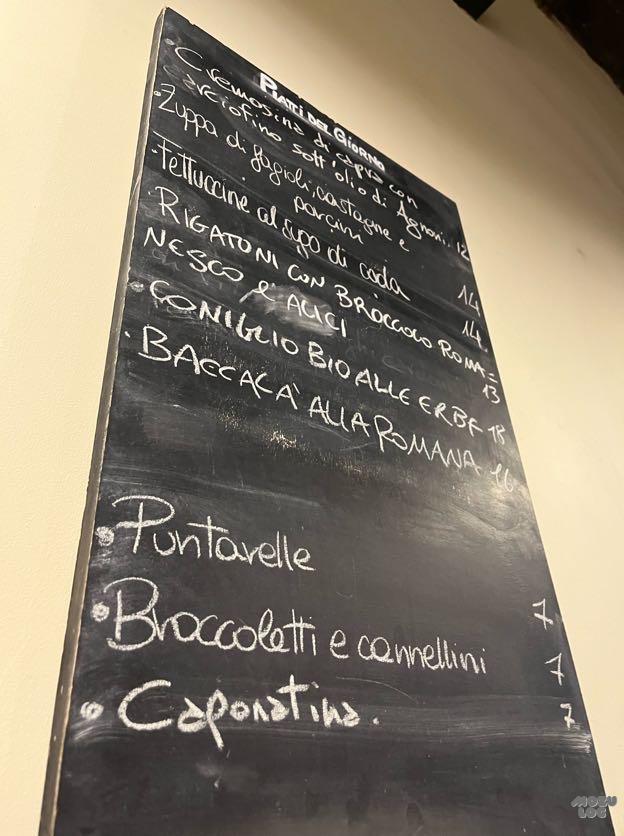 PIATTI DEL GIORNO
• Cremosina di capra con
carciofino sott'olio di Agnoni.. 12
• Zuppa di fagioli, castagne e
porcini 14
• Fettuccine al sugo di coda 14.
• RIGATONI CON BROCCOLO ROMA=
NESCO E ALICI 13
• CONIGLIO BIO ALLE ERBE 18
• BACCALÀ ALLA ROMANA 16
• Puntarelle 7
• Broccoletti e cannellini 7
• Caponatina. 7
MOZU
LOG